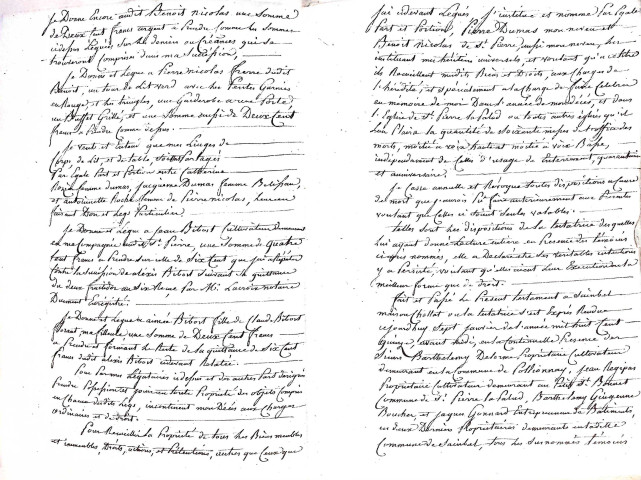 Je Donne Encore audit Benoit Nicolas une Somme
de Deux Cent francs argent a Prendre Comme la Somme
cidessus Leguée, sur les deniers ou créances qui se
trouveront Comprises dans ma Succession,
Je Donne et Legue a Pierre Nicolas frere dudit
Benoit, un tour de Lit verd avec les Pentes Garnies
en Rouge, et les tringles, une Garderobe a une Porte,
un Buffet Grillé, et une Somme aussi de Deux Cent
francs a Prendre Comme dessus.
Je veut et entend que mes Linges de
Corps, de Lit, et de table, soient Partagés
Par Egale Part et Portion entre Catherine
Roche femme dumas, Jacqueme Dumas femme
et antoinette Roche femme de Pierre nicolas, Leur en
faisant Don et Legs Particulier.
Je Donne et Legue a Jean Bibost Cultivateur Demeurant
en ma Compagnie audit St. Pierre, une Somme de Quatre
Cent francs a Prendre sur celle de Six Cent que j'ai a Répéter
Contre la Succession de alexis Bibost Suivant la quittance
du deux fructidor an Six Reçue Par Me. Lacroix notaire
Dument Enregistré.
Je Donne et Legue a aimée Bibost fille de Claude Bibost
ma filleule une Somme de Deux Cent francs
a Prendre et formant le Reste de la quittance de Six Cent
francs dudit alexis Bibost cidevant Relatée.
Pour Par mes Légataires cidessus et des autres Part designés
Prendre Possession et jouir en toute Propriété des objets Compris
en Chacun desdits Legs, incontinent mon Décès aux Charges
ordinaires et de droit.
Pour Recueillir la Propriété de tous les Biens meubles
et immeubles, droits, actions, et Prétentions, autres que Ceux que
J'ai cidevant Legués J'institue et nomme Par Egale
Part et Portion, Pierre Dumas mon neveu et
Benoit Nicolas de St. Pierre, aussi mon neveu, les
instituant mes héritiers universels, et voulant qu'a ce titre
ils Recueillent mesdits Biens et Droits, aux Charges de
l'hérédité, et spécialement a la Charge de faire Celebrer
en memoire de moi Dans l'année de mon décès, et dans
l'Eglise de St. Pierre la Palud ou toutes autres églises qu'il
Leur Plaira la quantité de Soixante messes de l'office des
morts, moitié a voix haute et moitié a voix Basse,
independamment de Celles d'usage de Enterrement, quarantaine
et anniversaire.
Je Casse annulle et Révoque toutes dispositions a Cause
de mort que j'aurois Pu faire anterieurement aux Presentes
voulant que Celles ci Soient Seules valables.
telles Sont les dispositions de la testatrice desquelles
Lui ayant donné Lecture entiere en Presence des témoins
cy après nommés, elle a Declaré etre ses véritables intentions
y a Persisté, voulant qu'elles aient leur Execution de la
meilleure forme que de droit.
fait et Passé le Present testament a Sainbel
maison Chollat ou la testatrice s'est Exprès Rendue
cejourdhuy Sept janvier de l'année mil huit Cent
Quinze, avant midi, en la Continuelle Presence des
Sieurs Barthelemy Delorme Propriétaire Cultivateur
demeurant en la Commune de Pollionnay, Jean
Propriétaire Cultivateur demeurant au Petit St. Bonnet
Commune de St. Pierre la Palud, Barthelemy
Boucher, et Jaques Gonnard Entrepreneur de Batiments,
ces deux Derniers Propriétaires demeurants en ladite
Commune de Sainbel, tous les Susnommés témoins